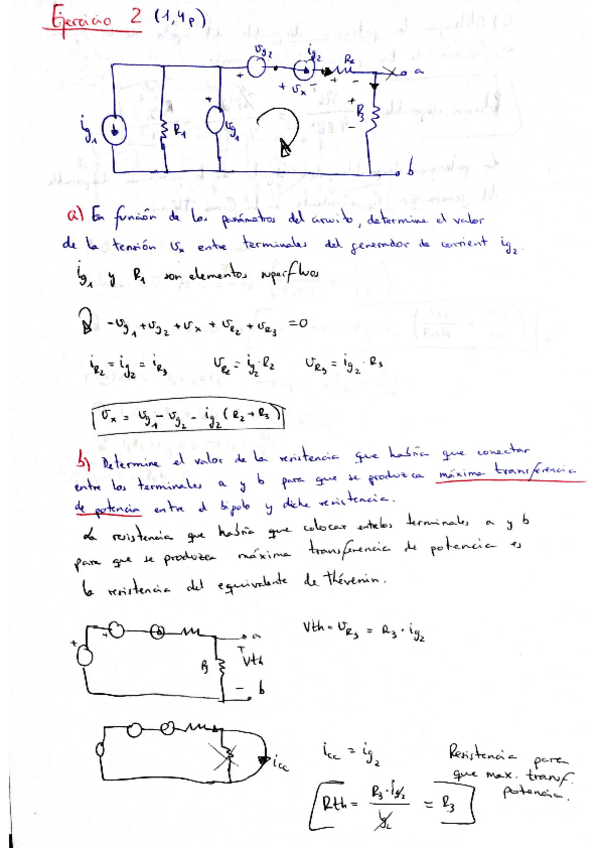 Ejercicio 2 (1,4p)
vg2 ig2 R2
+ + vx - + - a
ig1 R1 + vg1 + R3 -
b
a) En función de los parámetros del circuito, determine el valor
de la tensión vx entre terminales del generador de corrient ig2.
ig1 y R1 son elementos superfluos
-vg1 + vg2 + vx + vR2 + vR3 = 0
iR2 = ig2 = iR3 vR2 = ig2·R2 vR3 = ig2·R3
vx = vg1 - vg2 - ig2 (R2+R3)
b) Determine el valor de la resistencia que habría que conectar
entre los terminales a y b para que se produzca máxima transferencia
de potencia entre el bipolo y dicha resistencia.
La resistencia que habría que colocar entre los terminales a y b
para que se produzca máxima transferencia de potencia es
la resistencia del equivalente de Thévenin.
+ + a
R3 + Vth
- b
Vth = vR3 = R3·ig2
icc
icc = ig2
Rth = R3·ig2 / ig2 = R3
Resistencia para
que max. transf.
potencia.